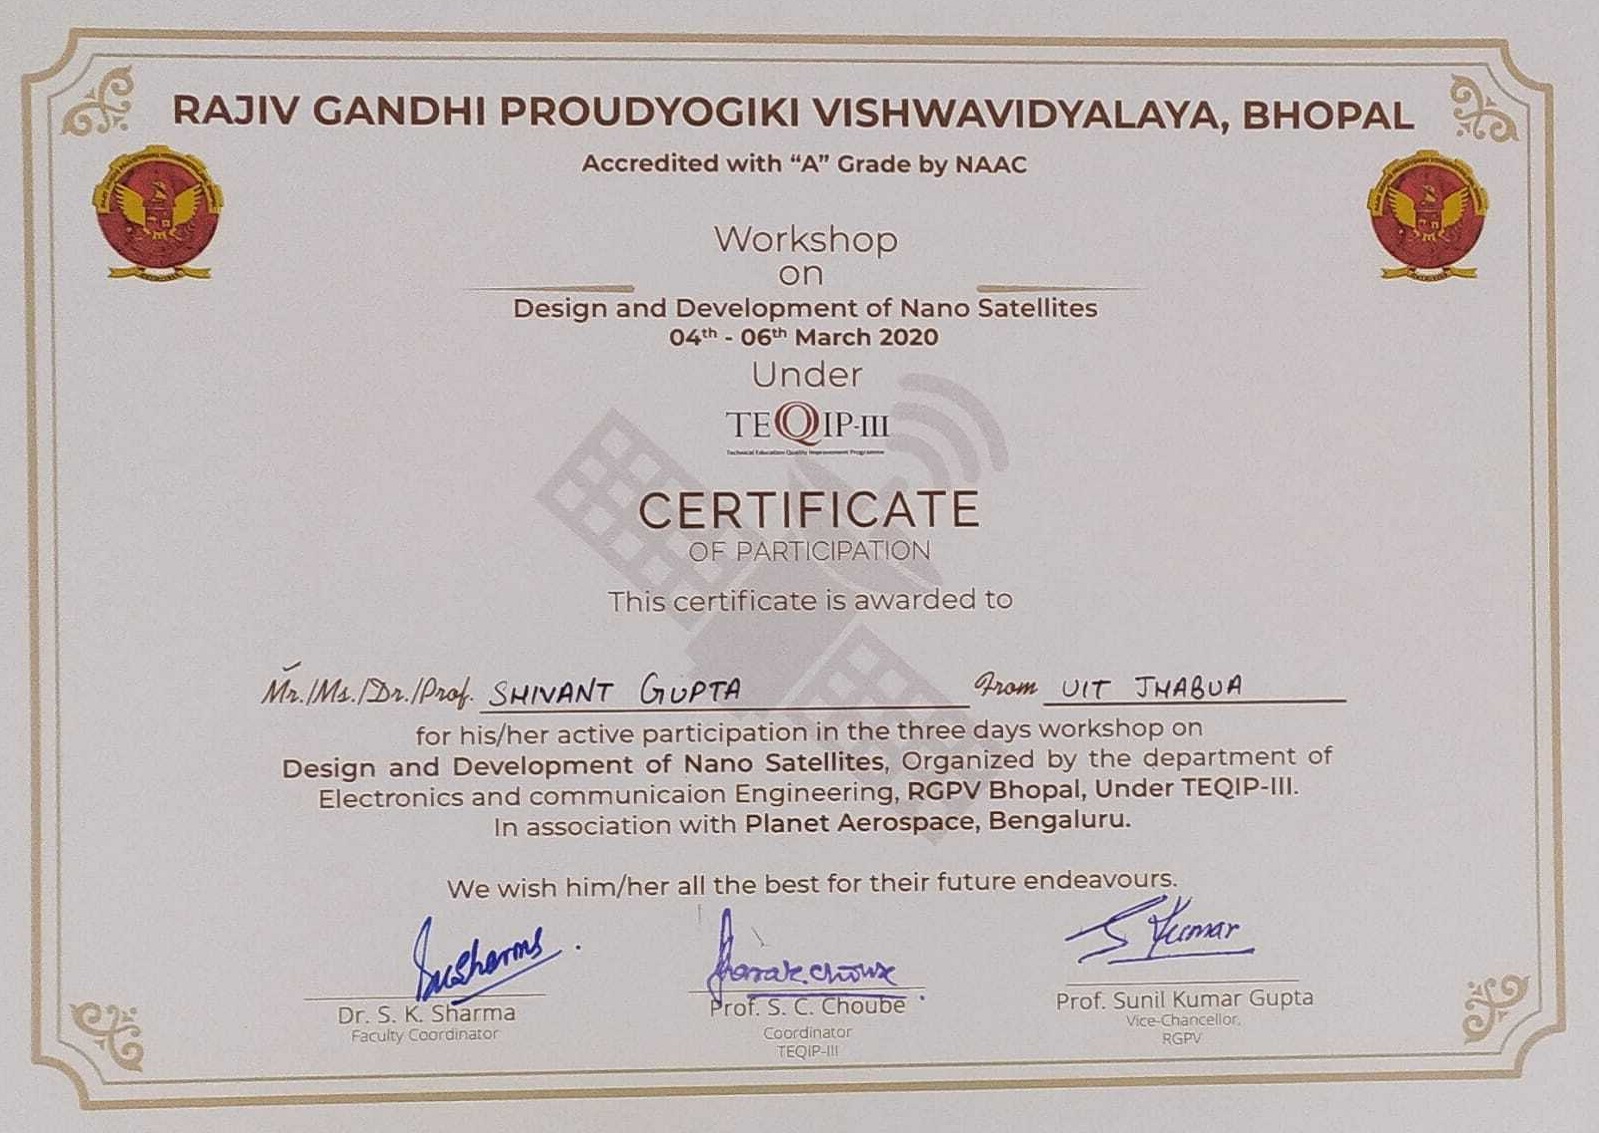 RAJIV GANDHI PROUDYOGIKI VISHWAVIDYALAYA, BHOPAL
Accredited with “A” Grade by NAAC
Workshop
on
Design and Development of Nano Satellites
04th - 06th March 2020
Under
TEQIP-III
Technical Education Quality Improvement Programme
CERTIFICATE
OF PARTICIPATION
This certificate is awarded to
Mr./Ms./Dr./Prof. SHIVANT GUPTA From UIT JHABUA
for his/her active participation in the three days workshop on
Design and Development of Nano Satellites, Organized by the department of
Electronics and communicaion Engineering, RGPV Bhopal, Under TEQIP-III.
In association with Planet Aerospace, Bengaluru.
We wish him/her all the best for their future endeavours.
S Kumar
Dr. S. K. Sharma
Faculty Coordinator
Prof. S. C. Choube
Coordinator
TEQIP-III
Prof. Sunil Kumar Gupta
Vice-Chancellor,
RGPV